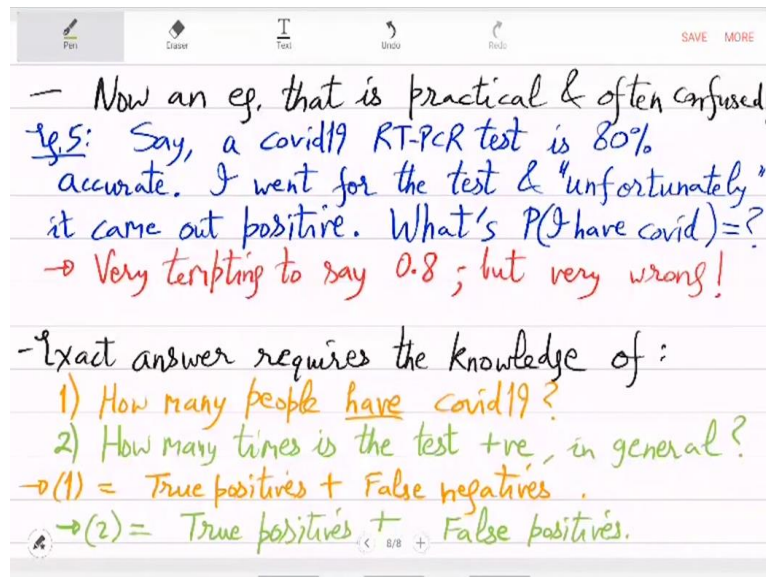 Pen Eraser Text Undo Redo SAVE MORE
– Now an eg. that is practical & often confused
Eg.5: Say, a covid19 RT-PCR test is 80%
accurate. I went for the test & "unfortunately"
it came out positive. What's P(I have covid)=?
→ Very tempting to say 0.8 ; but very wrong!
- Exact answer requires the knowledge of :
1) How many people have covid19 ?
2) How many times is the test +ve, in general ?
→(1) = True positives + False negatives .
→(2) = True positives + False positives.
< 8/8 +